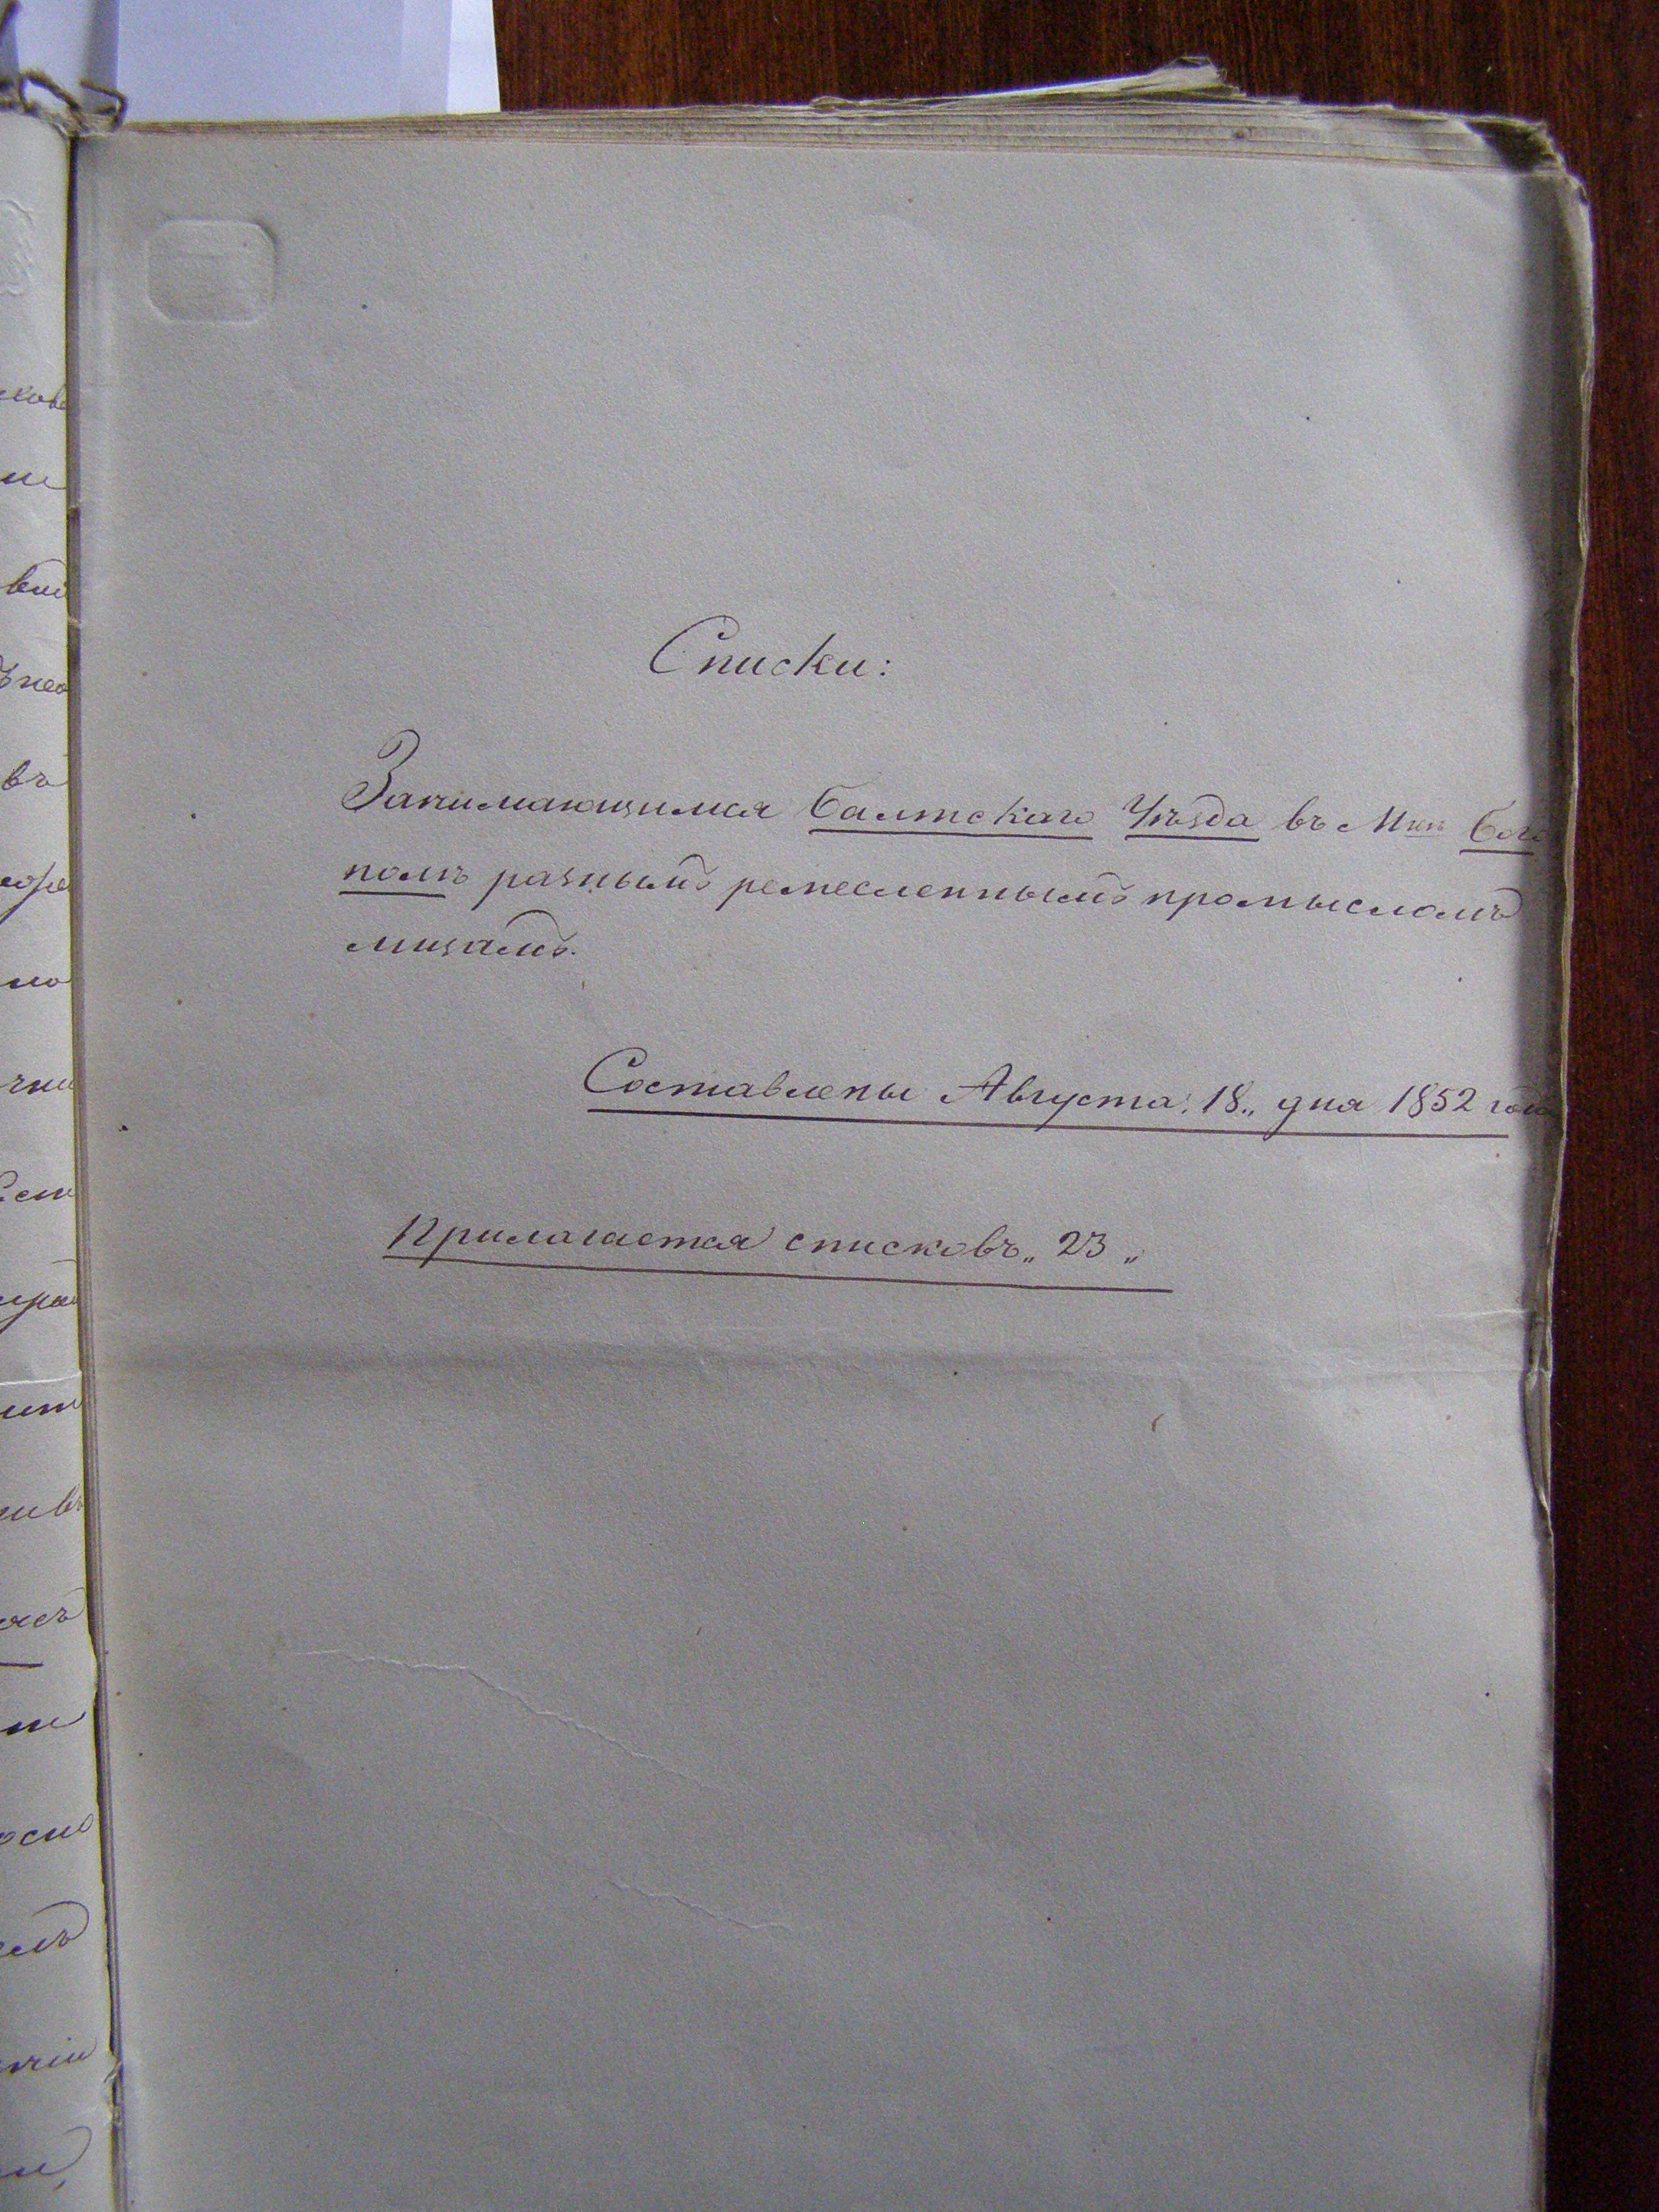 Списки:
Занимающимся Балтскаго Уѣзда въ Бого
полѣ разнымъ ремесленнымъ промысломъ
лицамъ.
Составлены Августа „18„ дня 1852 года
Прилагается списковъ „23„